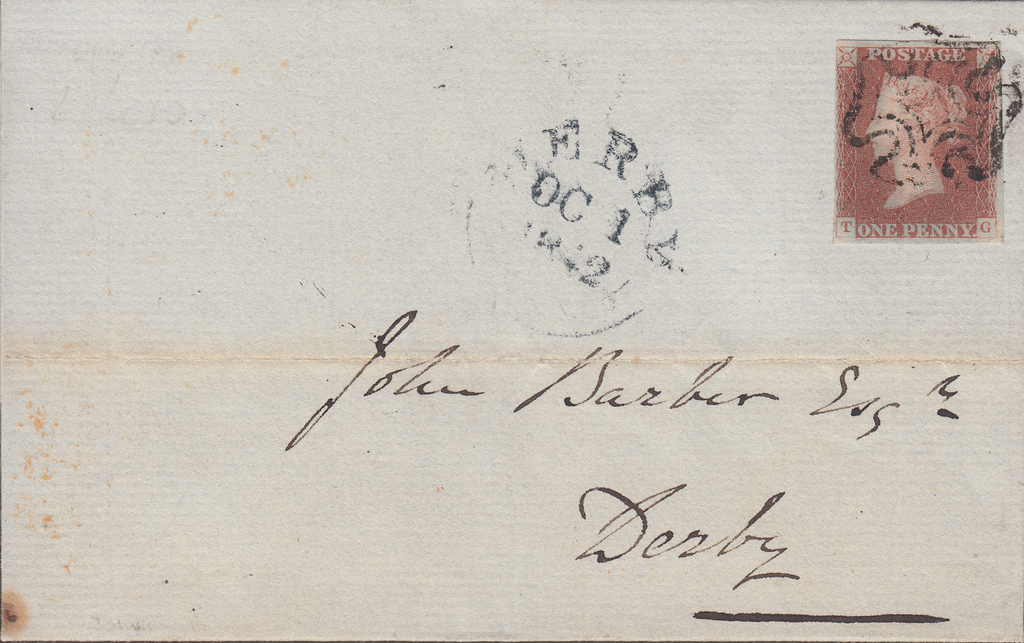 POSTAGE
T ONE PENNY G
DERBY
OC 1
1842
John Barber Esqr
Derby